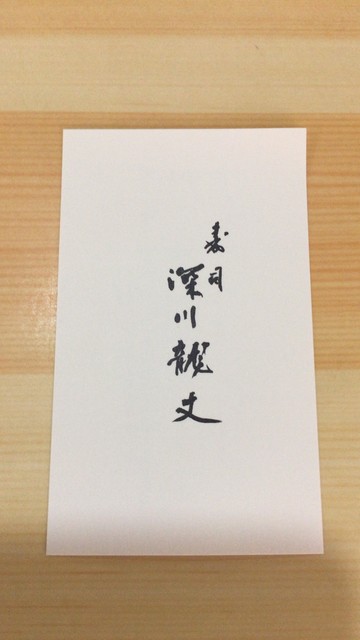 寿司
深川龍丈